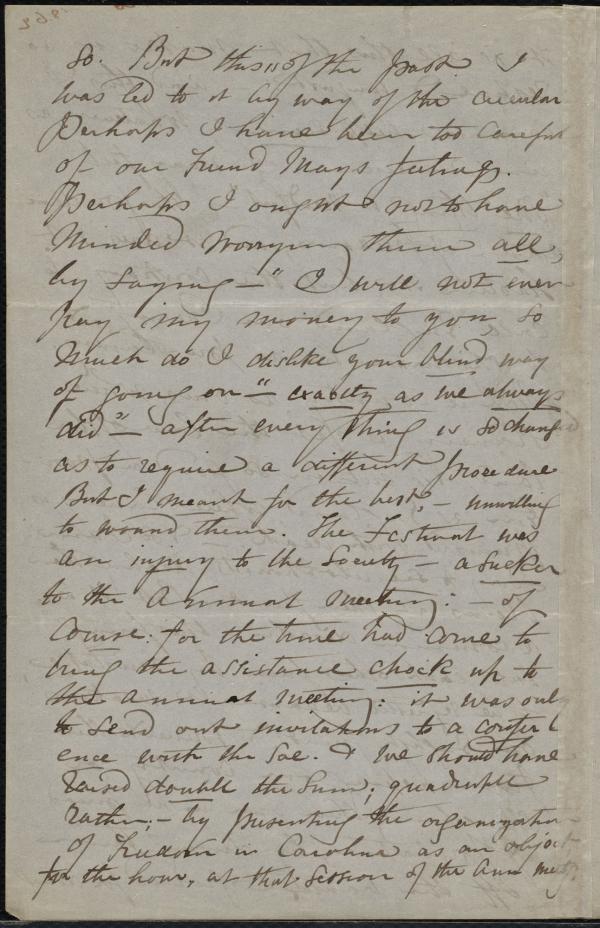 so. But this is of the past. I
was led to it by way of the circular
Perhaps I have been too careful
of our friend Mays feelings.
Perhaps I ought not to have
minded worrying them all,
by saying — "I will not even
pay my money to you, so
much do I dislike your blind way
of going on — "exactly as we always
did" — after every thing is so changed
as to require a different procedure
But I meant for the best, — unwilling
to wound them. The Festival was
an injury to the Society — a sucker
to the Annual meeting: — of
course: for the time had come to
bring the assistance chock up to
the annual meeting: it was only
to send out invitations to a confer
ence with the Soc. & we should have
raised double the sum; quadruple
rather; — by presenting the organization
of freedom in Carolina as an object
for the hour, at that session of the Ann meetg.